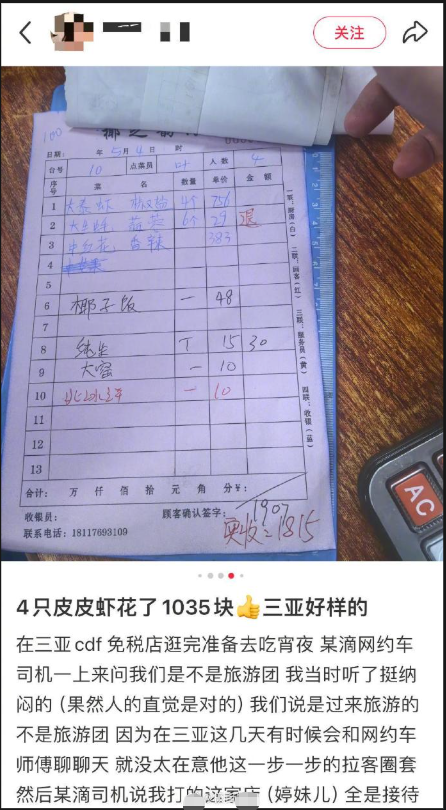 关注
100
日期： 年 5 月 4 日 时
台号 10 点菜员 叶 人数 4
序号 菜 名 数量 单价 金额
1 4个 256
2 6个 29 退
3 383
4
5
6 椰子饭 一 48
7
8 纯生 T 15 30
9 大窑 一 10
10 一 10
11
12
13
合计： 万 仟 佰 拾 元 角 分￥：
1907
收银员： 顾客确认签字：
实收：1815
联系电话：18117693109
一联：厨房(白) 二联：顾客(红) 三联：服务员(黄) 四联：收银(蓝)
AC
4只皮皮虾花了1035块👍三亚好样的
在三亚cdf 免税店逛完准备去吃宵夜 某滴网约车
司机一上来问我们是不是旅游团 我当时听了挺纳
闷的（果然人的直觉是对的）我们说是过来旅游的
不是旅游团 因为在三亚这几天有时候会和网约车
师傅聊聊天 就没太在意他这一步一步的拉客圈套
然后某滴司机说我打的这家店（婷妹儿）全是接待